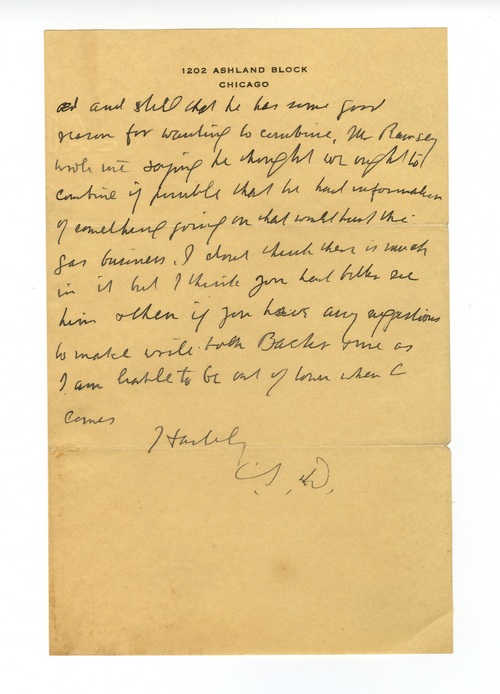 1202 ASHLAND BLOCK
CHICAGO
and still that he has some good
reason for wanting to combine, Mr Ramsey
wrote me saying he thought we ought to
combine if possible that he had information
of something going on that would hurt the
gas business. I dont think there is much
in it but I think you had better see
him & then if you have any suggestions
to make write both and me as
I am liable to be out of town when C
comes
Hastily
C. S. D.